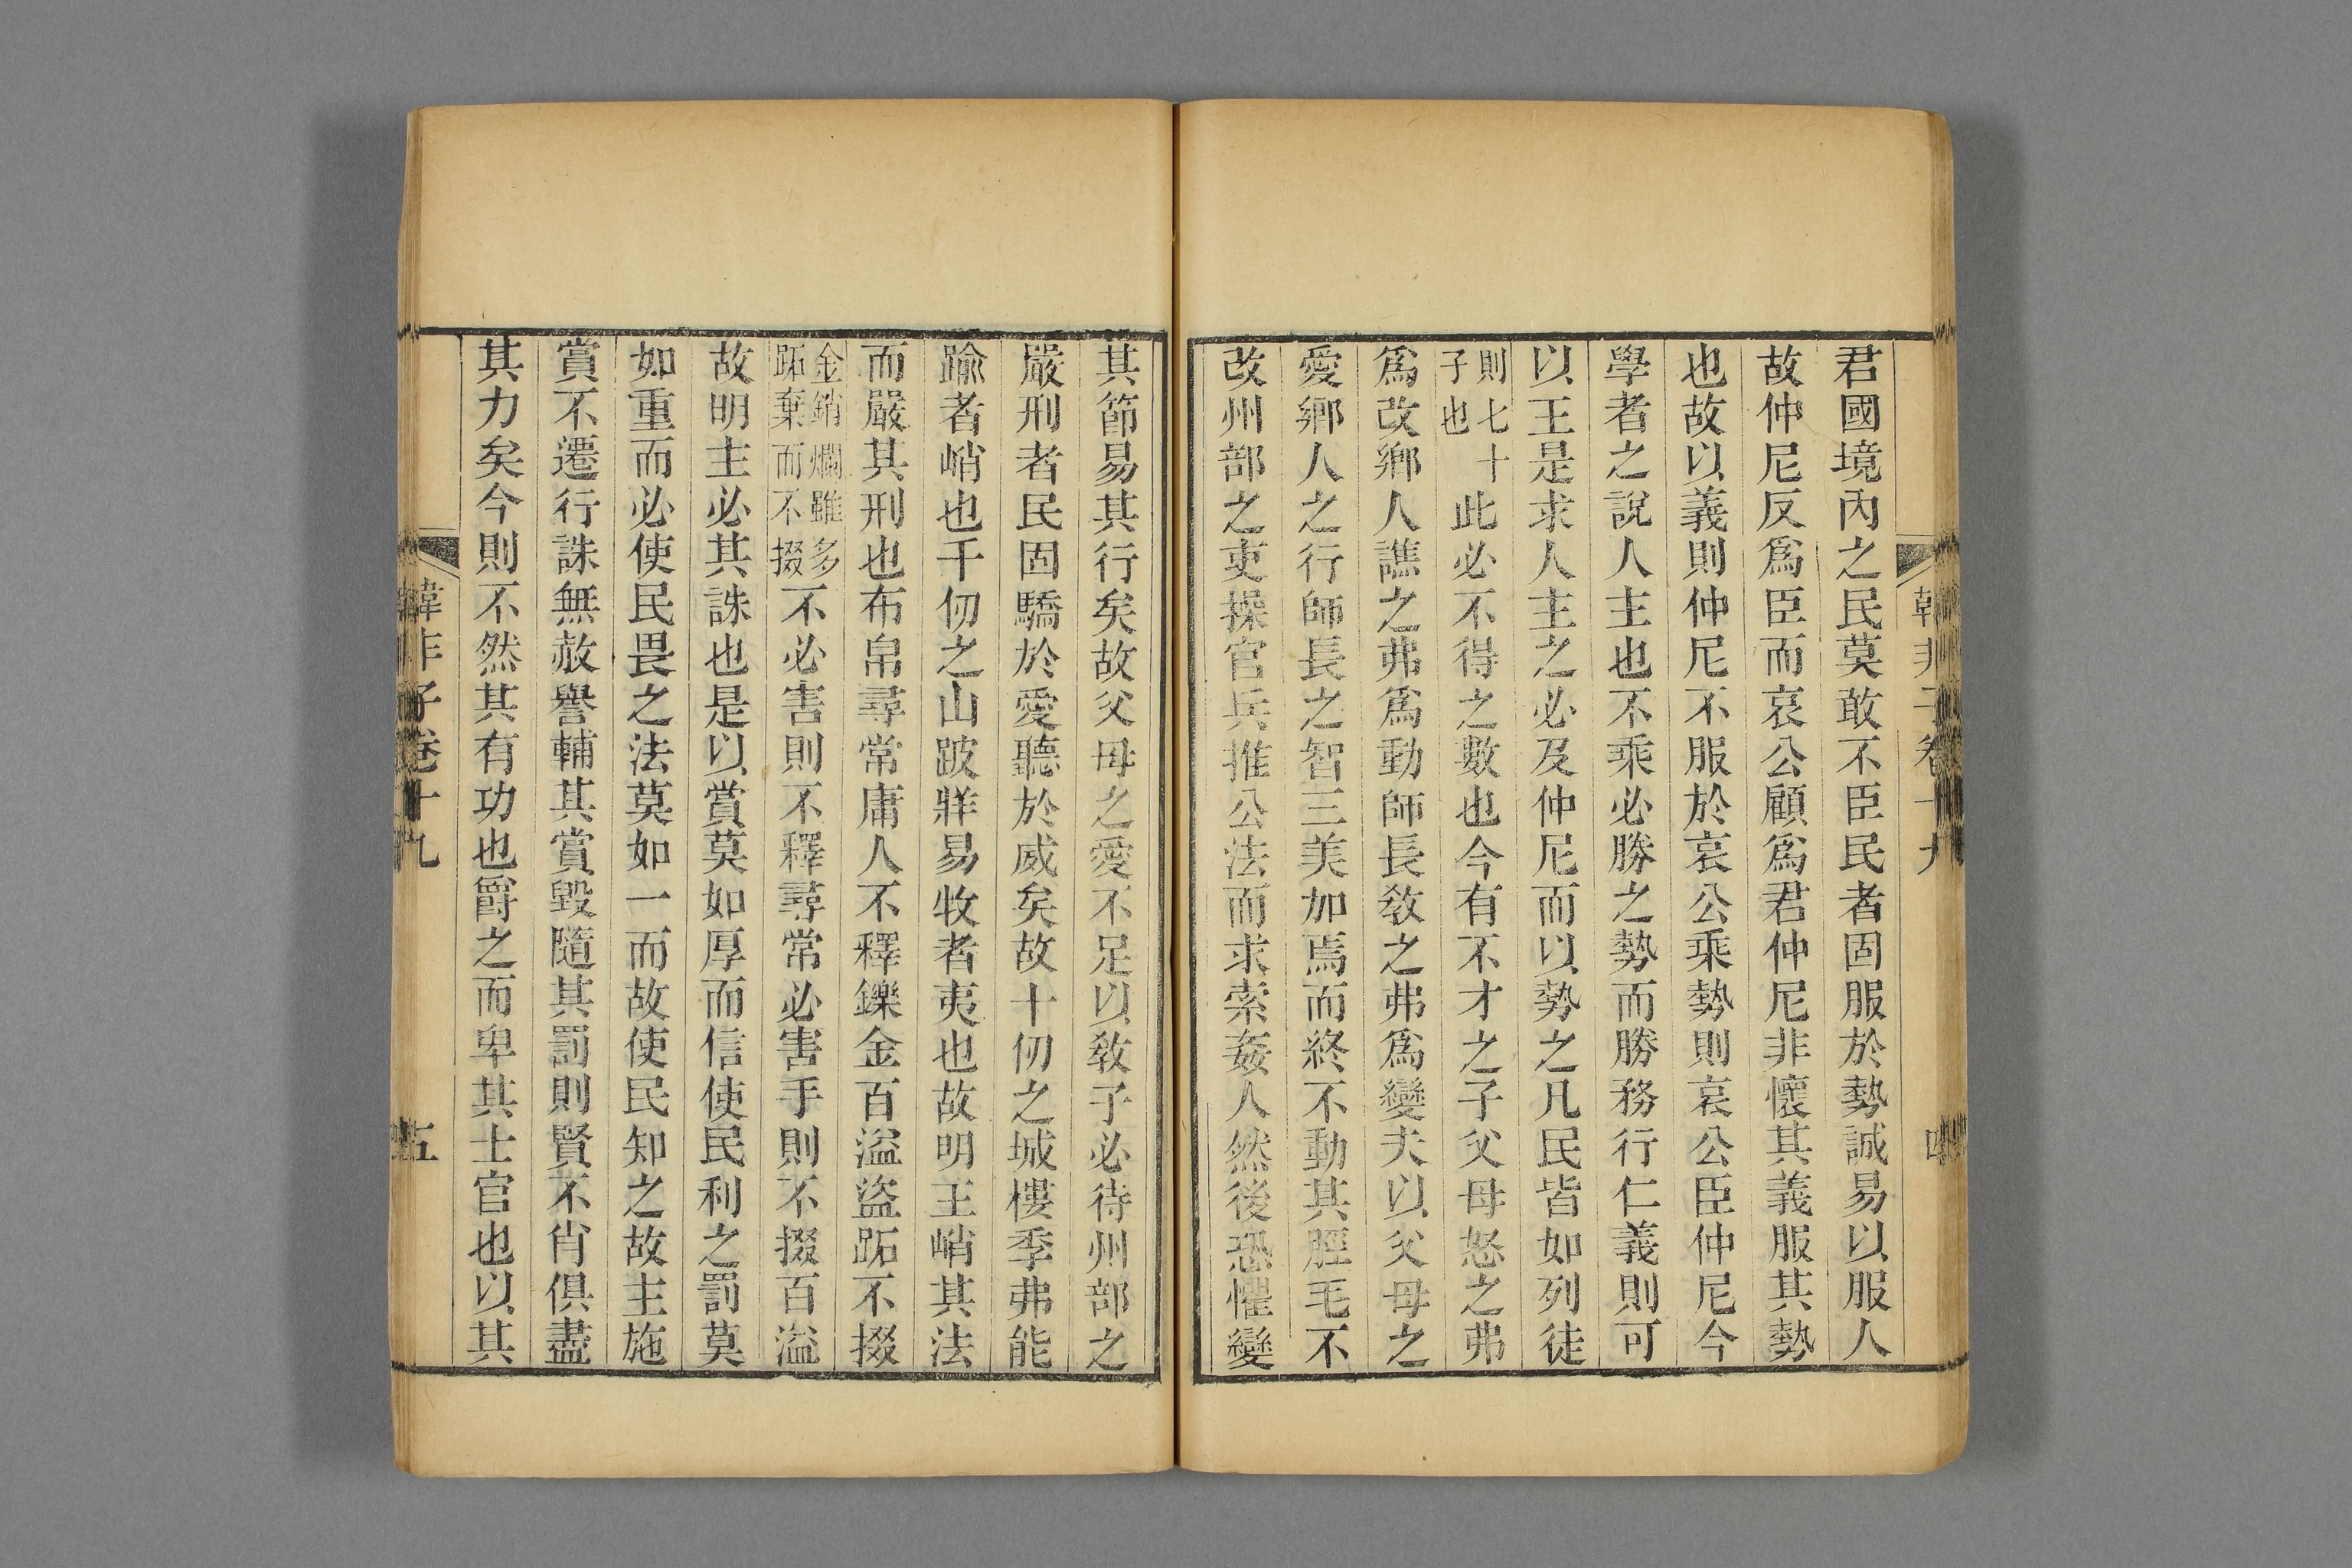 韓非子卷十九
君國境內之民莫敢不臣民者固服於勢誠易以服人
故仲尼反爲臣而哀公顧爲君仲尼非懷其義服其勢
也故以義則仲尼不服於哀公乘勢則哀公臣仲尼今
學者之說人主也不乘必勝之勢而勝務行仁義則可
以王是求人主之必及仲尼而以勢之凡民皆如列徒
則七十
子也
此必不得之數也今有不才之子父母怒之弗
爲改鄉人譙之弗爲動師長教之弗爲變夫以父母之
愛鄉人之行師長之智三美加焉而終不動其脛毛不
改州部之吏操官兵推公法而求索姦人然後恐懼變
其節易其行矣故父母之愛不足以教子必待州部之
嚴刑者民固驕於愛聽於威矣故十仞之城樓季弗能
踰者峭也千仞之山跛牂易牧者夷也故明王峭其法
而嚴其刑也布帛尋常庸人不釋鑠金百溢盜跖不掇
金銷爛雖多
跖棄而不掇
不必害則不釋尋常必害手則不掇百溢
故明主必其誅也是以賞莫如厚而信使民利之罰莫
如重而必使民畏之法莫如一而故使民知之故主施
賞不遷行誅無赦譽輔其賞毀隨其罰則賢不肖俱盡
其力矣今則不然其有功也爵之而卑其士官也以其
韓非子卷十九
五